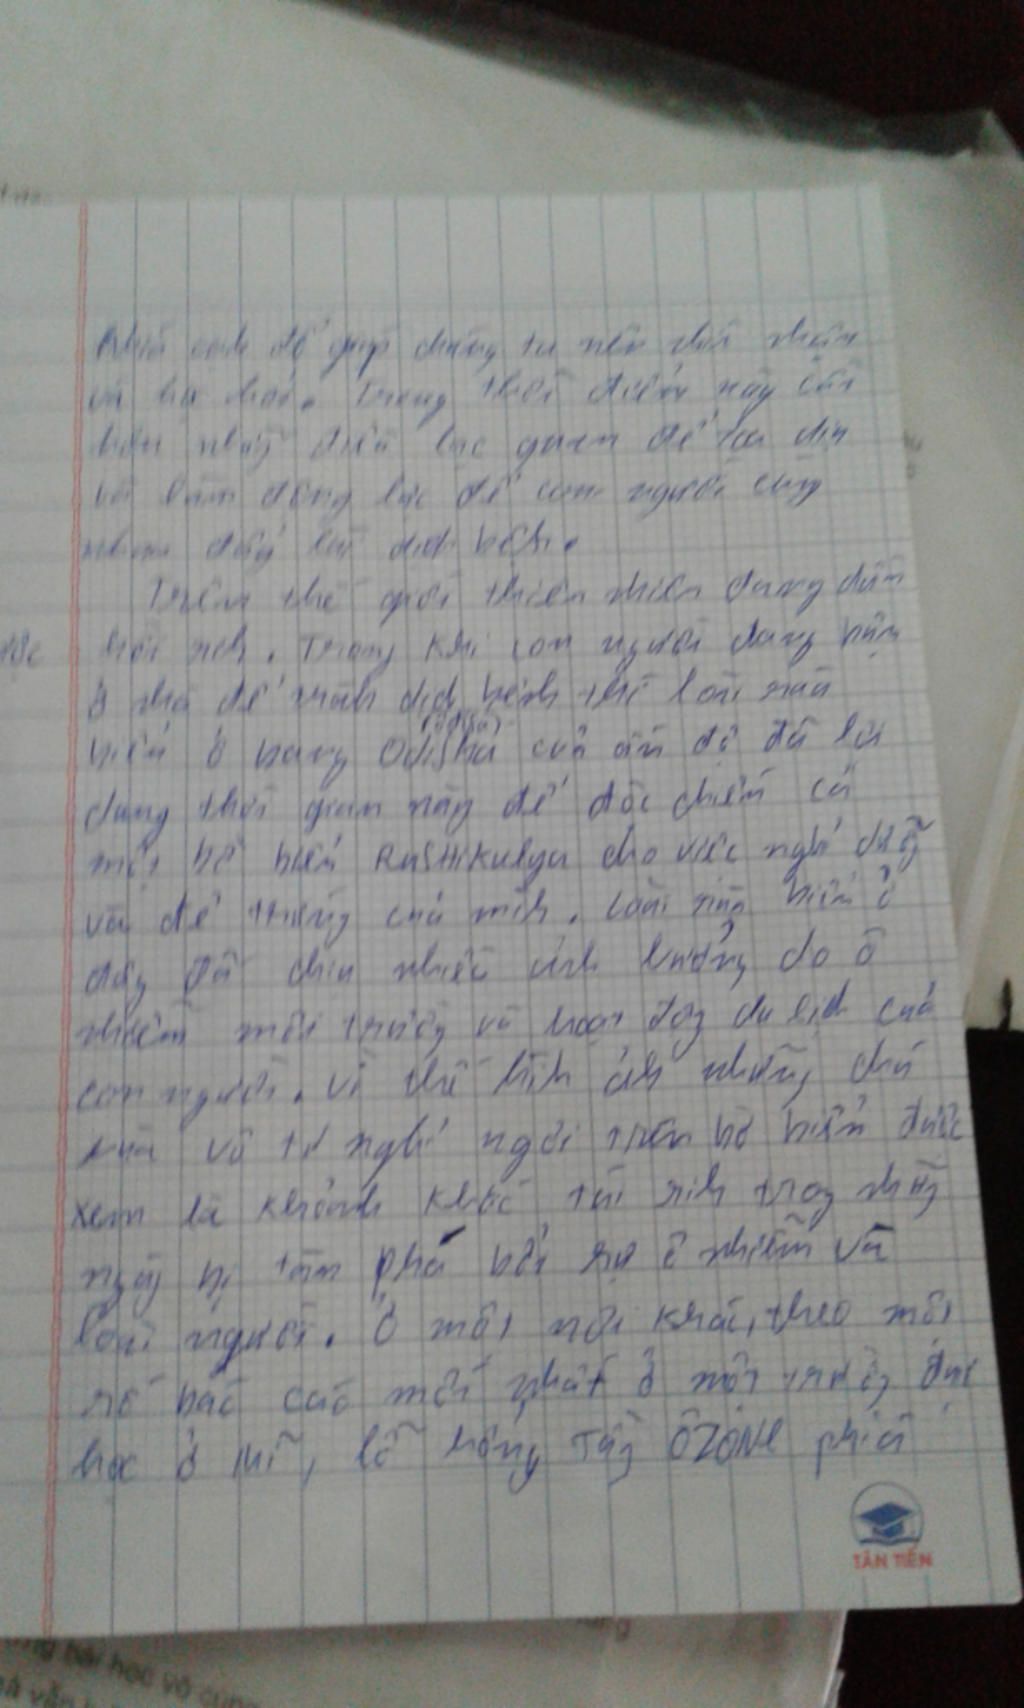 khía cạnh để giúp chúng ta nên nhìn nhận
và học hỏi. Trong thời điểm này cần
hơn những điều lạc quan để tạo dựng
và làm động lực để con người cùng
nhau đẩy lùi dịch bệnh.
Trên thế giới thiên nhiên đang dần
hồi sinh. Trong khi con người đang bận
ở nhà để tránh dịch bệnh thì loài rùa
biển ở bang Odisha của ấn độ đã lợi
dụng thời gian này để độc chiếm cả
một bờ biển Rushikulya cho việc nghỉ dưỡng
và đẻ trứng của mình. Loài rùa biển ở
đây đã chịu nhiều ảnh hưởng do ô
nhiễm môi trường và hoạt động du lịch của
con người. Vì thế hình ảnh những chú
rùa vô tư nghỉ ngơi trên bờ biển được
xem là khoảnh khắc tái sinh trong những
ngày bị tàn phá bởi sự ô nhiễm và
loài người. Ở một nơi khác, theo một
số báo cáo mới nhất ở một trường đại
học ở Mĩ, lỗ hổng Tầng ÔZONE phía
TÂN TIẾN
bài học vô cùng